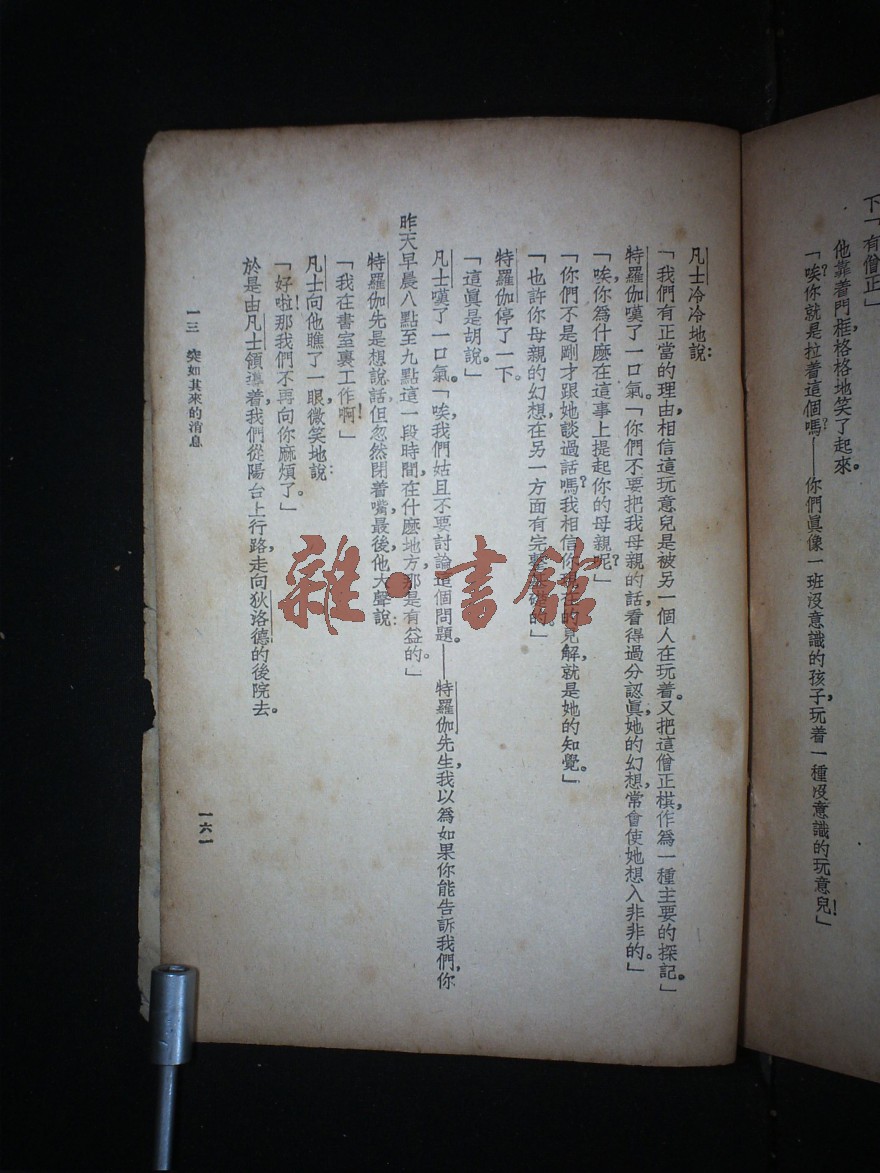 下「有僧正」
他靠着門框格格地笑了起來。
「唉？你就是拉着這個嗎？——你們眞像一班沒意識的孩子，玩着一種沒意識的玩意兒！」
凡士冷冷地說：
「我們有正當的理由，相信這玩意兒是被另一個人在玩着。又把這僧正棋，作爲一種主要的探記。」
特羅伽嘆了一口氣。「你們不要把我母親的話，看得過分認眞，她的幻想，常會使她想入非非的。」
「唉，你爲什麽在這事上提起你的母親呢？」
「你們不是剛才跟她談過話嗎？我相信你現在的見解，就是她的知覺。」
「也許你母親的幻想，在另一方面有完整基礎的」
特羅伽停了一下。
「這眞是胡說。」
凡士嘆了一口氣。「唉，我們姑且不要討論這個問題。——特羅伽先生，我以爲如果你能告訴我們，你
昨天早晨八點至九點這一段時間，在什麽地方，那是有益的。」
特羅伽先是想說話，但忽然閉着嘴，最後，他大聲說：
「我在書室裏工作啊！」
凡士向他瞧了一眼，微笑地說：
「好啦！那我們不再向你麻煩了。」
於是由凡士領導着我們從陽台上行路走向狄洛德的後院去。
一三　突如其來的消息
一六一
雜·書館